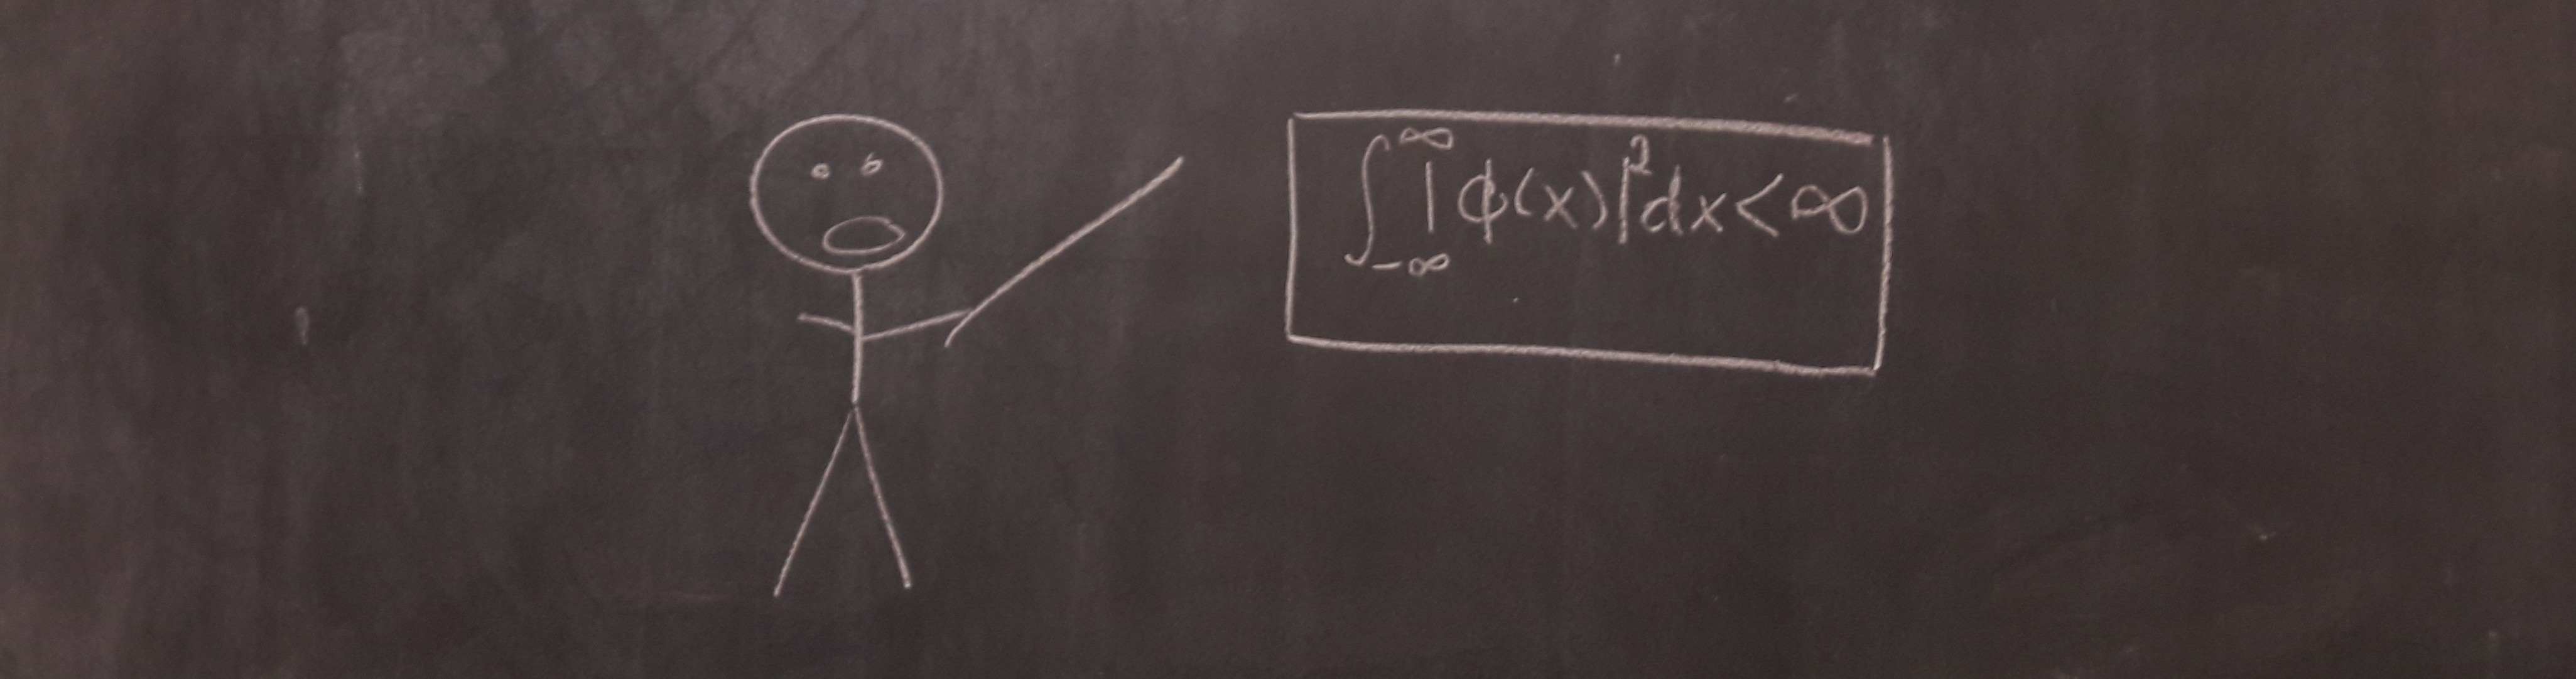 ∫_{-∞}^{∞} |ϕ(x)|² dx < ∞